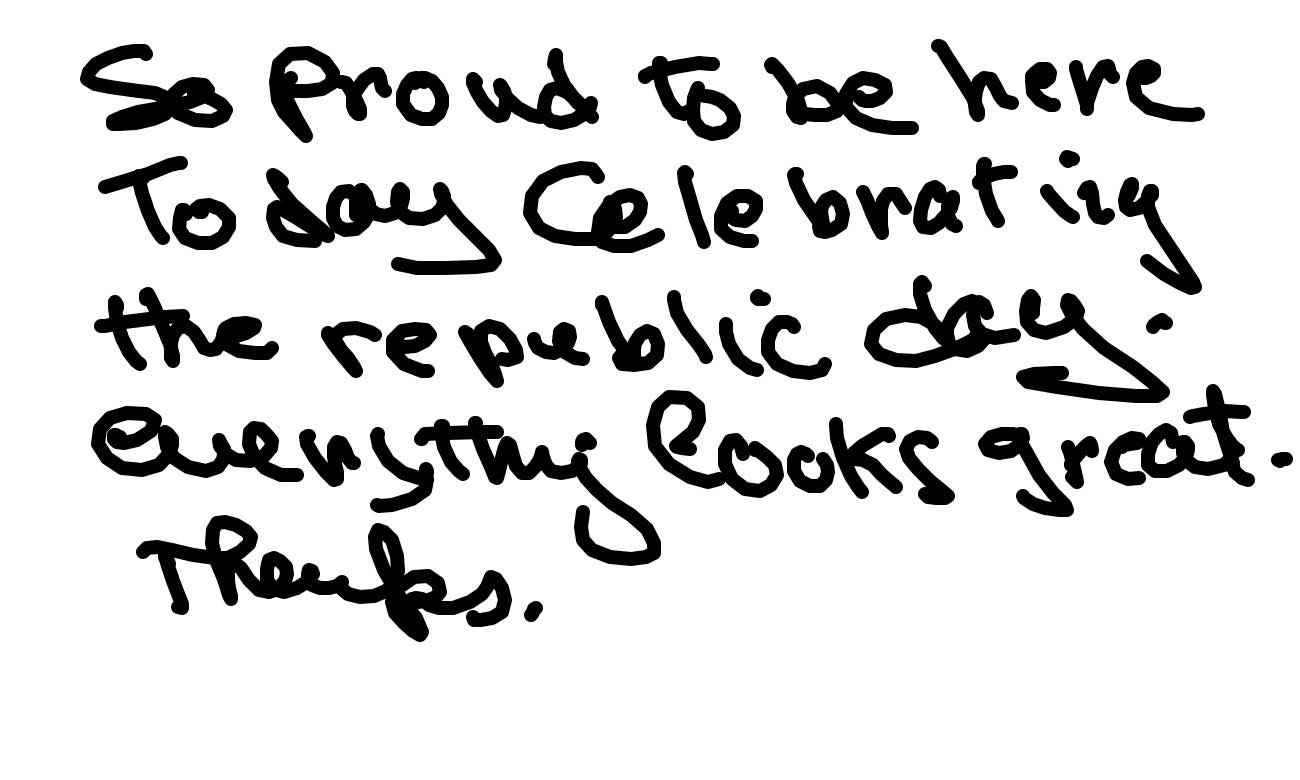 So proud to be here
Today Celebrating
the republic day.
everything looks great.
Thanks.